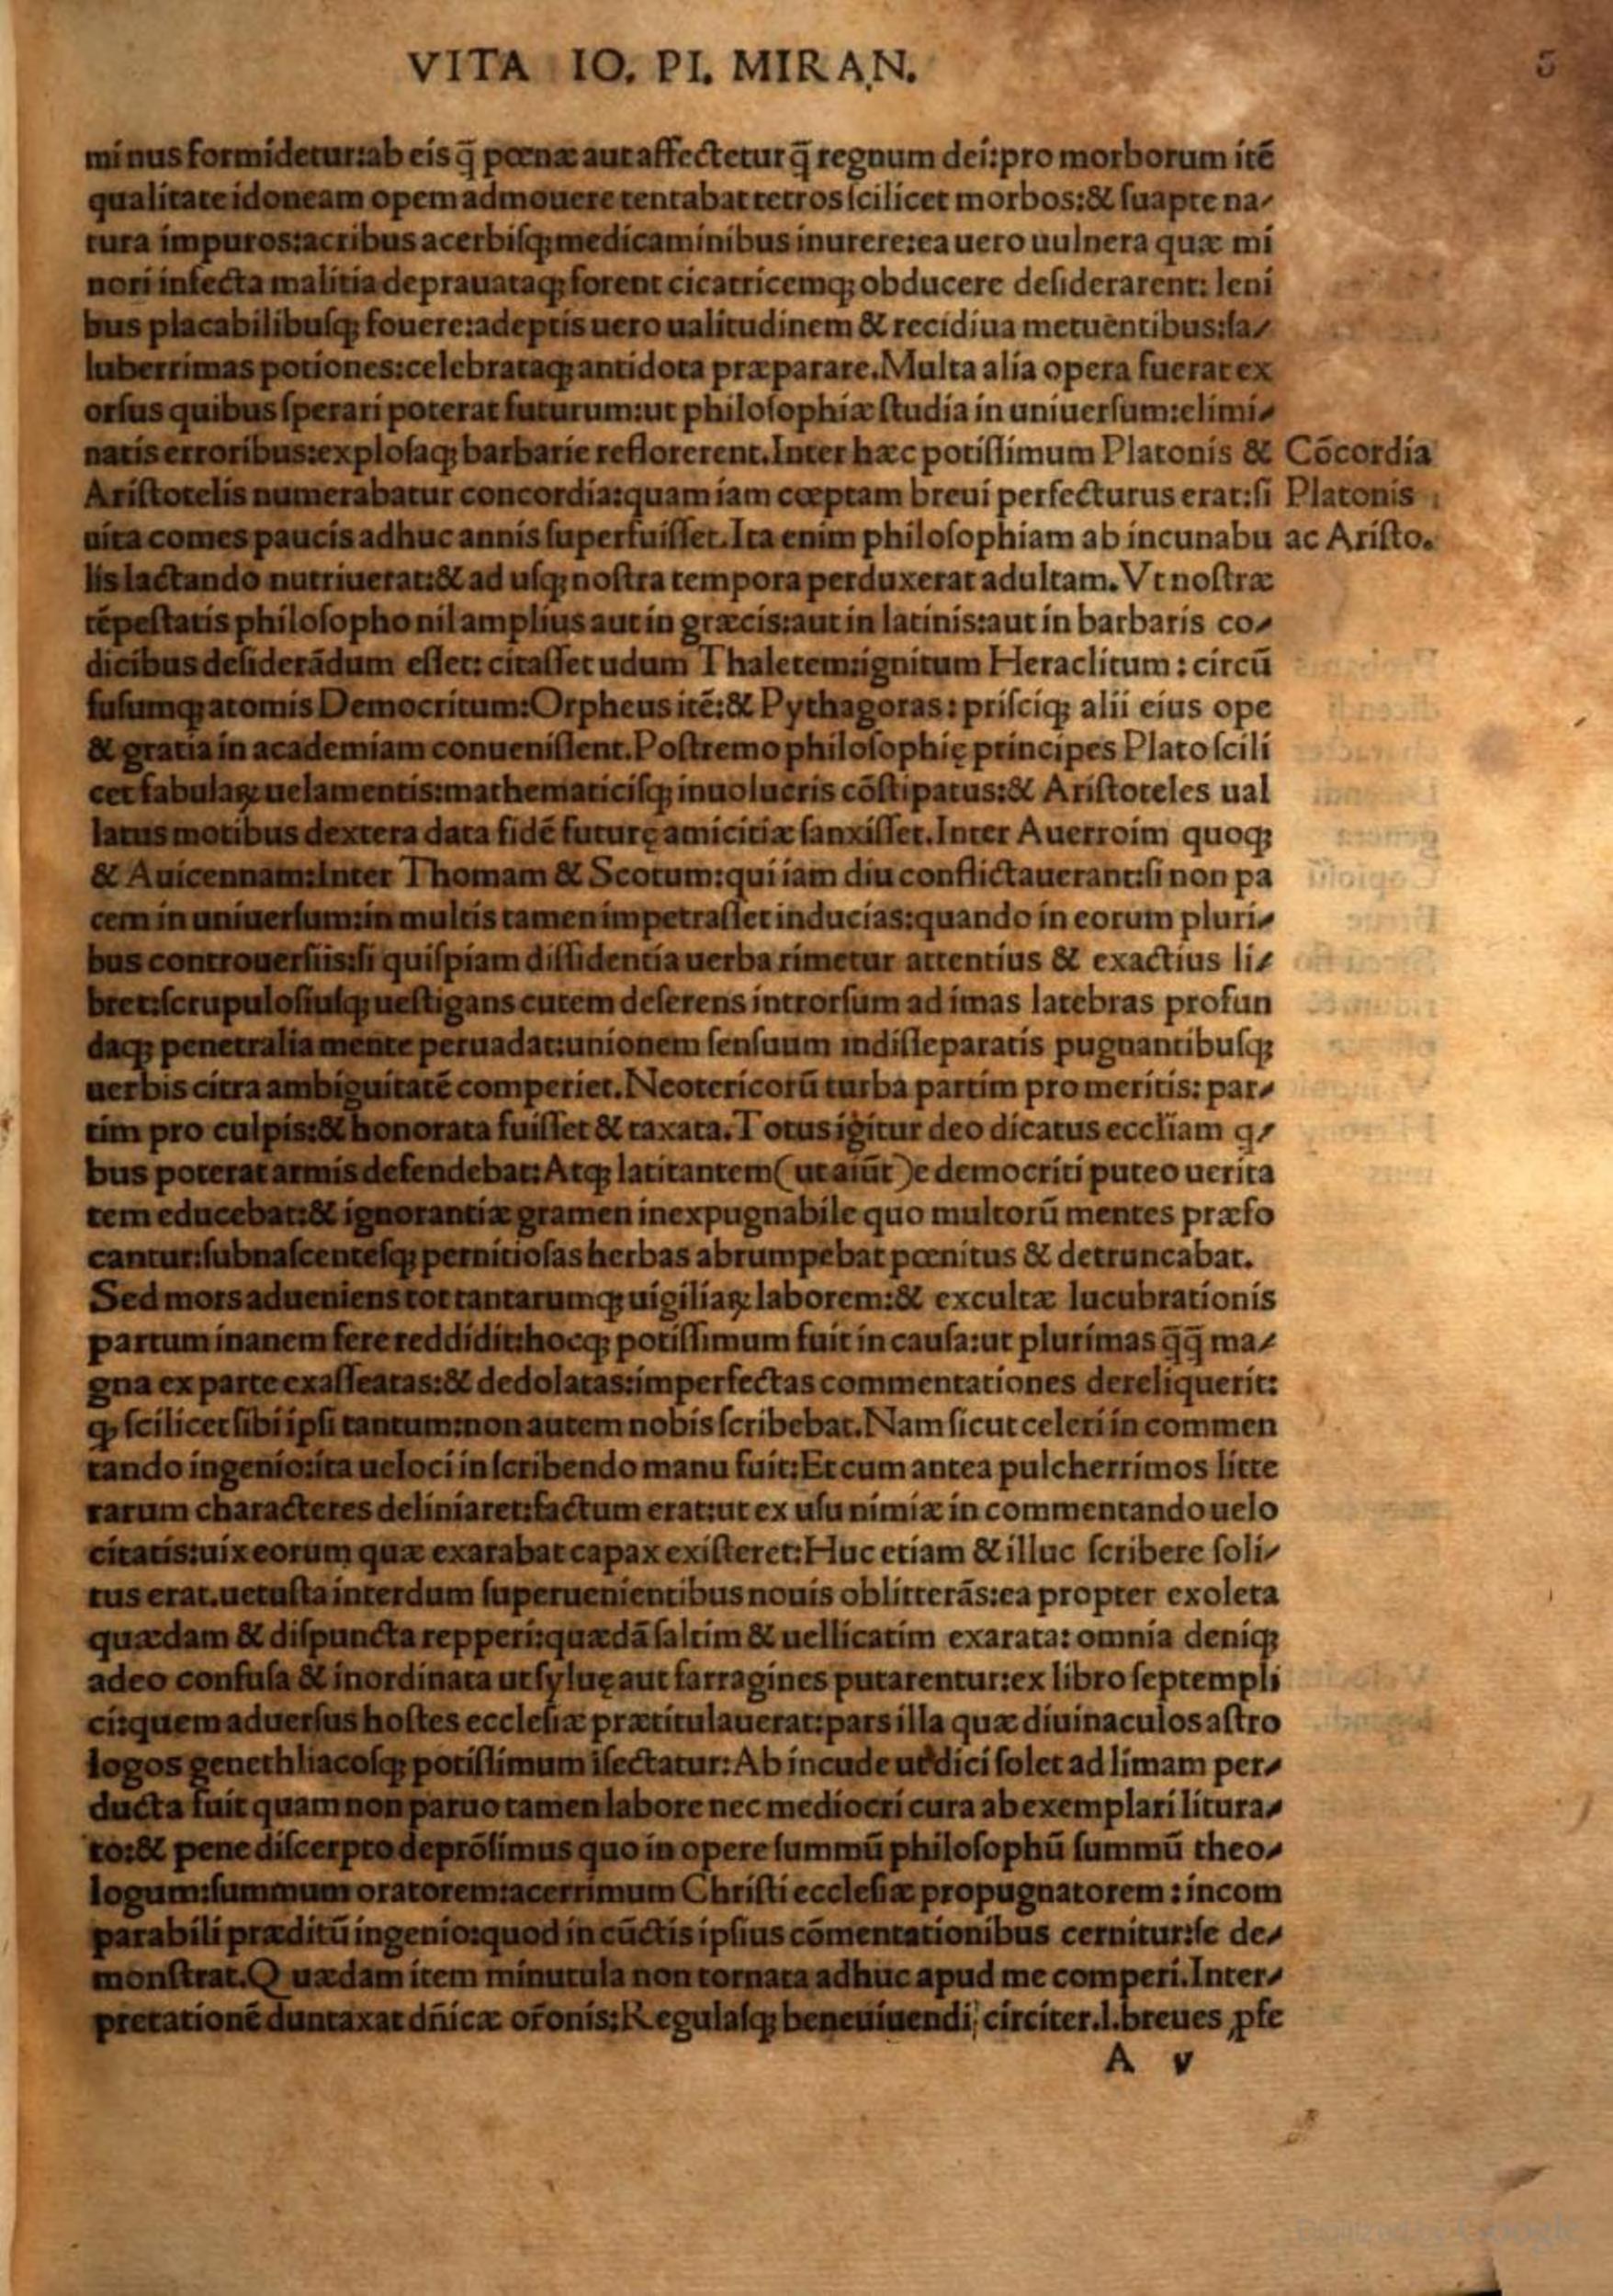 VITA IO. PI. MIRAN.
5
minus formidetur:ab eis q̄ pœnæ aut affectetur q̄ regnum dei:pro morborum itē
qualitate idoneam opem admouere tentabat tetros ſcilicet morbos:& ſuapte na⸗
tura impuros:acribus acerbiſq; medicaminibus inurere:ea uero uulnera quæ mi
nori infecta malitia deprauataq; forent cicatricemq; obducere deſiderarent: leni
bus placabilibuſq; fouere:adeptis uero ualitudinem & recidiua metuentibus:ſa⸗
luberrimas potiones:celebrataq; antidota præparare.Multa alia opera fuerat ex
orſus quibus ſperari poterat futurum:ut philoſophiæ ſtudia in uniuerſum:elimi⸗
natis erroribus:exploſaq; barbarie reflorerent.Inter hæc potiſſimum Platonis &
Ariſtotelis numerabatur concordia:quam iam cœptam breui perfecturus erat:ſi
uita comes paucis adhuc annis ſuperfuiſſet.Ita enim philoſophiam ab incunabu
Cōcordia
Platonis
ac Ariſto.
lis lactando nutriuerat:& ad uſq; noſtra tempora perduxerat adultam.Vt noſtræ
tēpeſtatis philoſopho nil amplius aut in græcis:aut in latinis:aut in barbaris co⸗
dicibus deſiderādum eſſet: citaſſet udum Thaletem:ignitum Heraclitum : circū
fuſumq; atomis Democritum:Orpheus itē:& Pythagoras : priſciq; alii eius ope
& gratia in academiam conueniſſent.Poſtremo philoſophię principes Plato ſcili
cet fabulaꝝ uelamentis:mathematiciſq; inuolucris cōſtipatus:& Ariſtoteles ual
latus motibus dextera data fidē futurę amicitiæ ſanxiſſet.Inter Auerroim quoq;
& Auicennam:Inter Thomam & Scotum:qui iam diu conflictauerant:ſi non pa
cem in uniuerſum:in multis tamen impetraſſet inducias:quando in eorum pluri⸗
bus controuerſiis:ſi quiſpiam diſſidentia uerba rimetur attentius & exactius li⸗
bret:ſcrupuloſiuſq; ueſtigans cutem deſerens introrſum ad imas latebras profun
daq; penetralia mente peruadat:unionem ſenſuum indiſſeparatis pugnantibuſq;
uerbis citra ambiguitatē comperiet.Neotericorū turba partim pro meritis: par⸗
tim pro culpis:& honorata fuiſſet & taxata.Totus igitur deo dicatus eccl̄iam q⸗
bus poterat armis defendebat:Atq; latitantem(ut aiūt)e democriti puteo uerita
tem educebat:& ignorantiæ gramen inexpugnabile quo multorū mentes præfo
cantur:ſubnaſcenteſq; pernitioſas herbas abrumpebat pœnitus & detruncabat.
Sed mors adueniens tot tantarumq; uigiliaꝝ laborem:& excultæ lucubrationis
partum inanem fere reddidit:hocq; potiſſimum fuit in cauſa:ut plurimas q̄q̄ ma⸗
gna ex parte exaſſeatas:& dedolatas:imperfectas commentationes dereliquerit:
ꝙ ſcilicet ſibi ipſi tantum:non autem nobis ſcribebat.Nam ſicut celeri in commen
tando ingenio:ita ueloci in ſcribendo manu fuit:Et cum antea pulcherrimos litte
rarum characteres deliniaret:factum erat:ut ex uſu nimiæ in commentando uelo
citatis:uix eorum quæ exarabat capax exiſteret:Huc etiam & illuc ſcribere ſoli⸗
tus erat.uetuſta interdum ſuperuenientibus nouis oblitterās:ea propter exoleta
quædam & diſpuncta repperi:quædā ſaltim & uellicatim exarata: omnia deniq;
adeo confuſa & inordinata ut ſyluę aut farragines putarentur:ex libro ſeptempli
ci:quem aduerſus hoſtes eccleſiæ prætitulauerat:pars illa quæ diuinaculos aſtro
logos genethliacoſq; potiſſimum iſectatur:Ab incude ut dici ſolet ad limam per⸗
ducta fuit quam non paruo tamen labore nec mediocri cura ab exemplari litura⸗
to:& pene diſcerpto deprōſimus quo in opere ſummū philoſophū ſummū theo⸗
logum:ſummum oratorem:acerrimum Chriſti eccleſiæ propugnatorem : incom
parabili præditū ingenio:quod in cūctis ipſius cōmentationibus cernitur:ſe de⸗
monſtrat.Quædam item minutula non tornata adhuc apud me comperi.Inter⸗
pretationē duntaxat dn̄icæ or̄onis:Regulaſq; beneuiuendi circiter.l.breues ꝓfe
A v
Digitized by Google